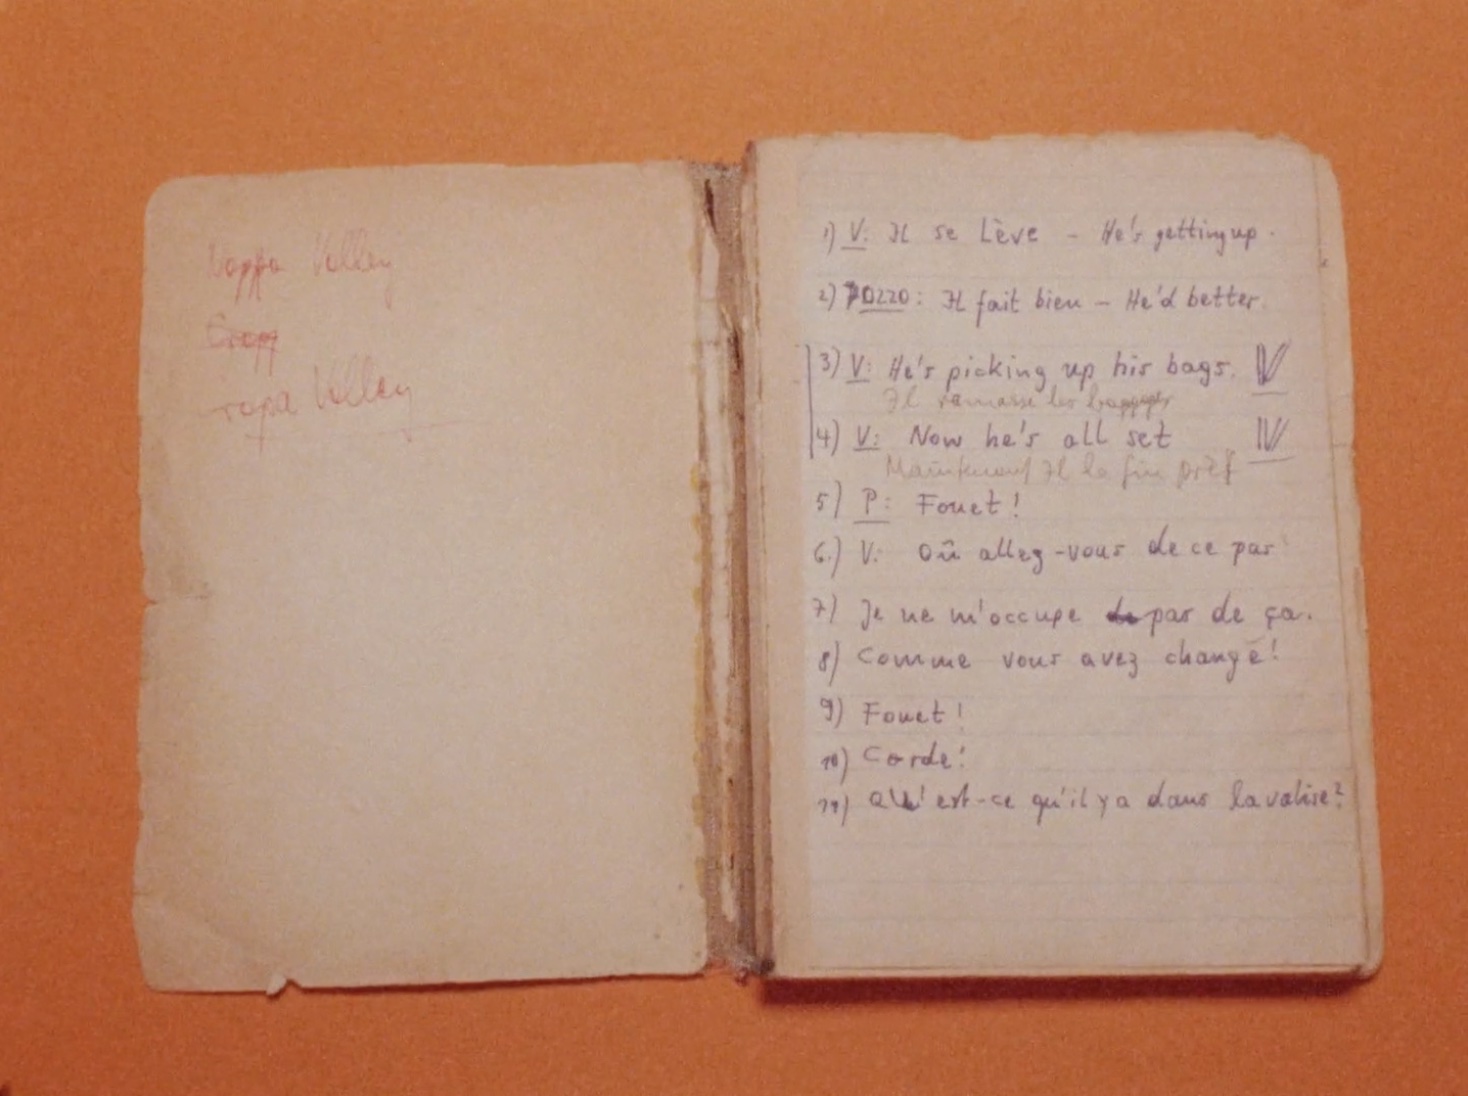 Nappa Valley
rapa Valley
1) V: Il se Lève - He's getting up.
2) POZZO: Il fait bien - He'd better.
3) V: He's picking up his bags. IV
Il ramasse les baggages
4) V: Now he's all set IV
Maintenant Il fin prêt
5) P: Fouet!
6.) V: Où allez-vous de ce pas
7) Je ne m'occupe pas de ça.
8) Comme vous avez changé!
9) Fouet!
10) Corde!
11) Qu'est-ce qu'il y a dans la valise?